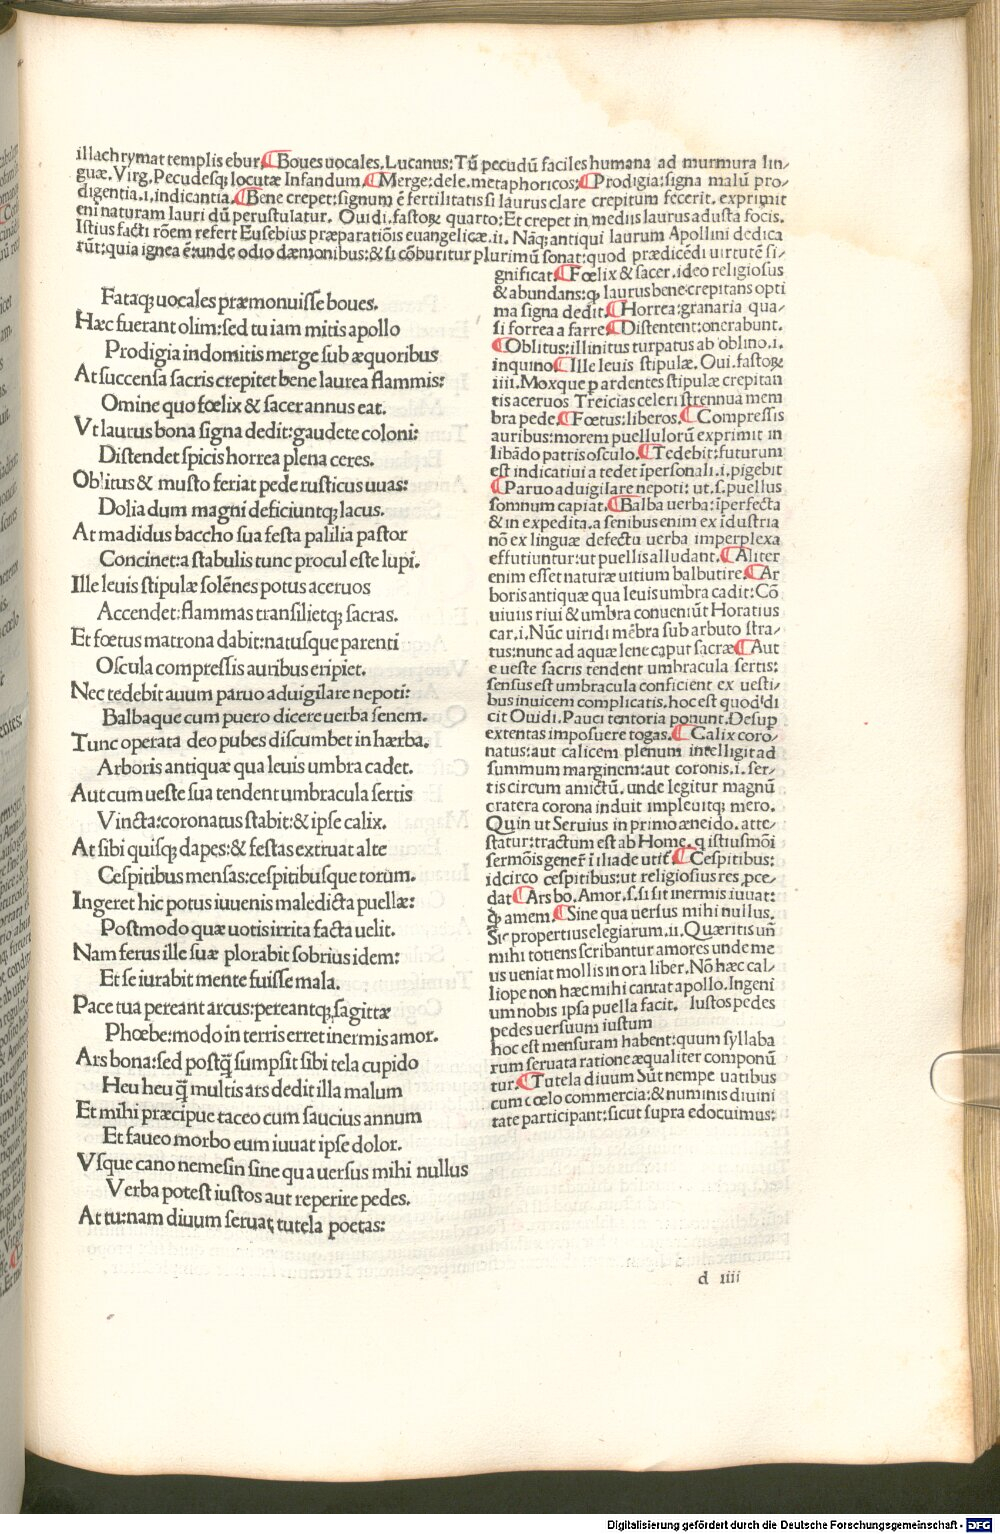 illachrymat templis ebur, ¶Boues uocales. Lucanus: Tū pecudū faciles humana ad murmura lin⸗
guæ. Virg. Pecudesqȝ locutæ Infandum. ¶Merge: dele. metaphoricos: ¶Prodigia: signa malū pro⸗
digentia. i. indicantia. ¶Bene crepet: signum ē fertilitatis si laurus clare crepitum fecerit. exprimit
eni naturam lauri dū perustulatur. Ouidi. fastoꝝ quarto: Et crepet in mediis laurus adusta focis.
Istius facti rōem refert Eusebius præparatiōis euangelicæ. ii. Nāqȝ antiqui laurum Apollini dedica
rūt: quia ignea ē: unde odio dæmonibus: & si cōburitur plurimū sonat: quod prædicēdi uirtutē si⸗
Fataqȝ uocales præmonuisse boues.
Hæc fuerant olim: sed tu iam mitis apollo
Prodigia indomitis merge sub æquoribus
At succensa sacris crepitet bene laurea flammis:
Omine quo fœlix & sacer annus eat.
Vt laurus bona signa dedit: gaudete coloni:
Distendet spicis horrea plena ceres.
Oblitus & musto feriat pede rusticus uuas:
Dolia dum magni deficiuntqȝ lacus.
At madidus baccho sua festa palilia pastor
Concinet: a stabulis tunc procul este lupi.
Ille leuis stipulæ solēnes potus aceruos
Accendet: flammas transilietqȝ sacras.
Et fœtus matrona dabit: natusque parenti
Oscula compressis auribus eripiet.
Nec tedebit auum paruo aduigilare nepoti:
Balbaque cum puero dicere uerba senem.
Tunc operata deo pubes discumbet in hærba.
Arboris antiquæ qua leuis umbra cadet.
Aut cum ueste sua tendent umbracula sertis
Vincta: coronatus stabit: & ipse calix.
At sibi quisqȝ dapes: & festas extruat alte
Cespitibus mensas: cespitibusque torum.
Ingeret hic potus iuuenis maledicta puellæ:
Postmodo quæ uotis irrita facta uelit.
Nam ferus ille suæ plorabit sobrius idem:
Et se iurabit mente fuisse mala.
Pace tua pereant arcus: pereantqȝ sagittæ
Phœbe: modo in terris erret inermis amor.
Ars bona: sed postq̄ sumpsit sibi tela cupido
Heu heu q̄ multis ars dedit illa malum
Et mihi præcipue. taceo cum saucius annum
Et faueo morbo cum iuuat ipse dolor.
Vsque cano nemesin sine qua uersus mihi nullus
Verba potest iustos aut reperire pedes.
At tu: nam diuum seruat tutela poetas:
gnificat. ¶Fœlix & sacer. ideo religiosus
& abundans: qȝ laurus bene crepitans opti
ma signa dedit. ¶Horrea: granaria qua⸗
si forrea a farre. ¶Distentent: onerabunt.
¶Oblitus: illinitus turpatus ab oblino. i.
inquino. ¶Ille leuis stipulæ. Oui. fastoꝝ
iiii. Moxque p ardentes stipulæ crepitan
tis aceruos Treicias celeri strennua mem
bra pede. ¶Fœtus: liberos. ¶Compressis
auribus: morem puellulorū exprimit in
libādo patris osculo. ¶Tedebit: futurum
est indicatiui a tedet īpersonali. i. pigebit
¶Paruo aduigilare nepoti: ut. s. puellus
somnum capiat. ¶Balba uerba: īperfecta
& in expedita. a senibus enim ex īdustria
nō ex linguæ defectu uerba imperplexa
effutiuntur: ut puellis alludant. ¶Aliter
enim esset naturæ uitium balbutire. ¶Ar
boris antiquæ qua leuis umbra cadit: Cō
uiuiis riui & umbra conueniūt Horatius
car. i. Nūc uiridi mēbra sub arbuto stra⸗
tus: nunc ad aquæ lene caput sacræ. ¶Aut
e ueste sacris tendent umbracula sertis:
sensus est umbracula conficient ex uesti⸗
bus inuicem complicatis. hoc est quod di
cit Ouidi. Pauci tentoria ponunt. Desup
extentas imposuere togas. ¶Calix coro⸗
natus: aut calicem plenum intelligit ad
summum marginem: aut coronis. i. ser⸗
tis circum amictū. unde legitur magnū
cratera corona induit impleuitqȝ mero.
Quin ut Seruius in primo æneido. atte
statur: tractum est ab Home. q istiusmōi
sermōis gener̄ ī iliade utit̄ ¶Cespitibus:
idcirco cespitibus: ut religiosius res pce
dat ¶Ars bo. Amor. s. si sit inermis iuuat:
qȝ amem. ¶Sine qua uersus mihi nullus.
Sic propertius elegiarum. ii. Quæritis un̄
mihi totiens scribantur amores unde me
us ueniat mollis in ora liber. Nō hæc cal⸗
liope non hæc mihi cantat apollo. Ingeni
um nobis ipsa puella facit. Iustos pedes
pedes uersuum iustum
hoc est mensuram habent: quum syllaba
rum seruata ratione æqualiter componū
tur. ¶Tutela diuum Sūt nempe uatibus
cum cœlo commercia: & numinis diuini
tate participant: sicut supra edocuimus:
d iiii
Digitalisierung gefördert durch die Deutsche Forschungsgemeinschaft - DFG